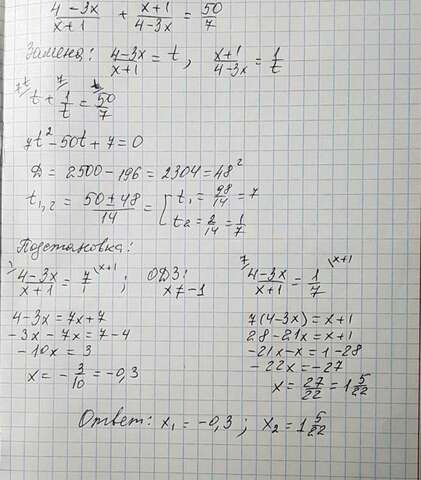 (4-3x)/(x+1) + (x+1)/(4-3x) = 50/7
Замена: (4-3x)/(x+1) = t, (x+1)/(4-3x) = 1/t
7t 7
t + 1/t = 50/7
7t² - 50t + 7 = 0
D = 2500 - 196 = 2304 = 48²
t1,2 = (50 ± 48)/14 = [ t1 = 98/14 = 7
t2 = 2/14 = 1/7
Подстановка:
(4-3x)/(x+1) = 7/1 \x+1 ; ОДЗ: x ≠ -1
4-3x = 7x+7
-3x - 7x = 7-4
-10x = 3
x = -3/10 = -0,3
7 (4-3x)/(x+1) = 1/7 \x+1
7(4-3x) = x+1
28-21x = x+1
-21x-x = 1-28
-22x = -27
x = 27/22 = 1 5/22
Ответ: x1 = -0,3 ; x2 = 1 5/22